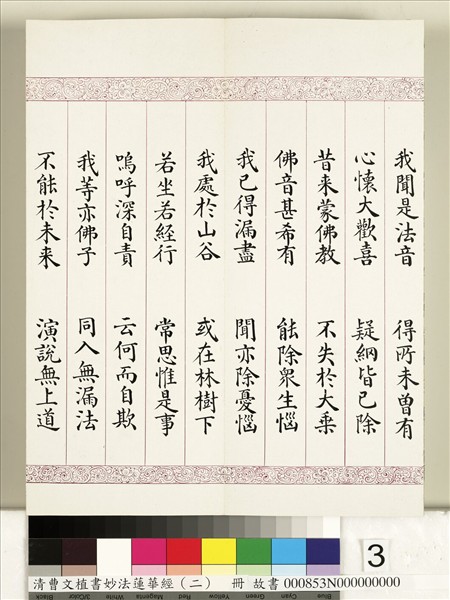 我聞是法音　得所未曾有
心懷大歡喜　疑網皆已除
昔来蒙佛教　不失於大乗
佛音甚希有　能除衆生惱
我已得漏盡　聞亦除憂惱
我處於山谷　或在林樹下
若坐若經行　常思惟是事
嗚呼深自責　云何而自欺
我等亦佛子　同入無漏法
不能於未来　演說無上道
3
Black 3/Color White Magenta Red Yellow Green Cyan Blue
清曹文植書妙法蓮華經（二） 冊 故書 000853N000000000